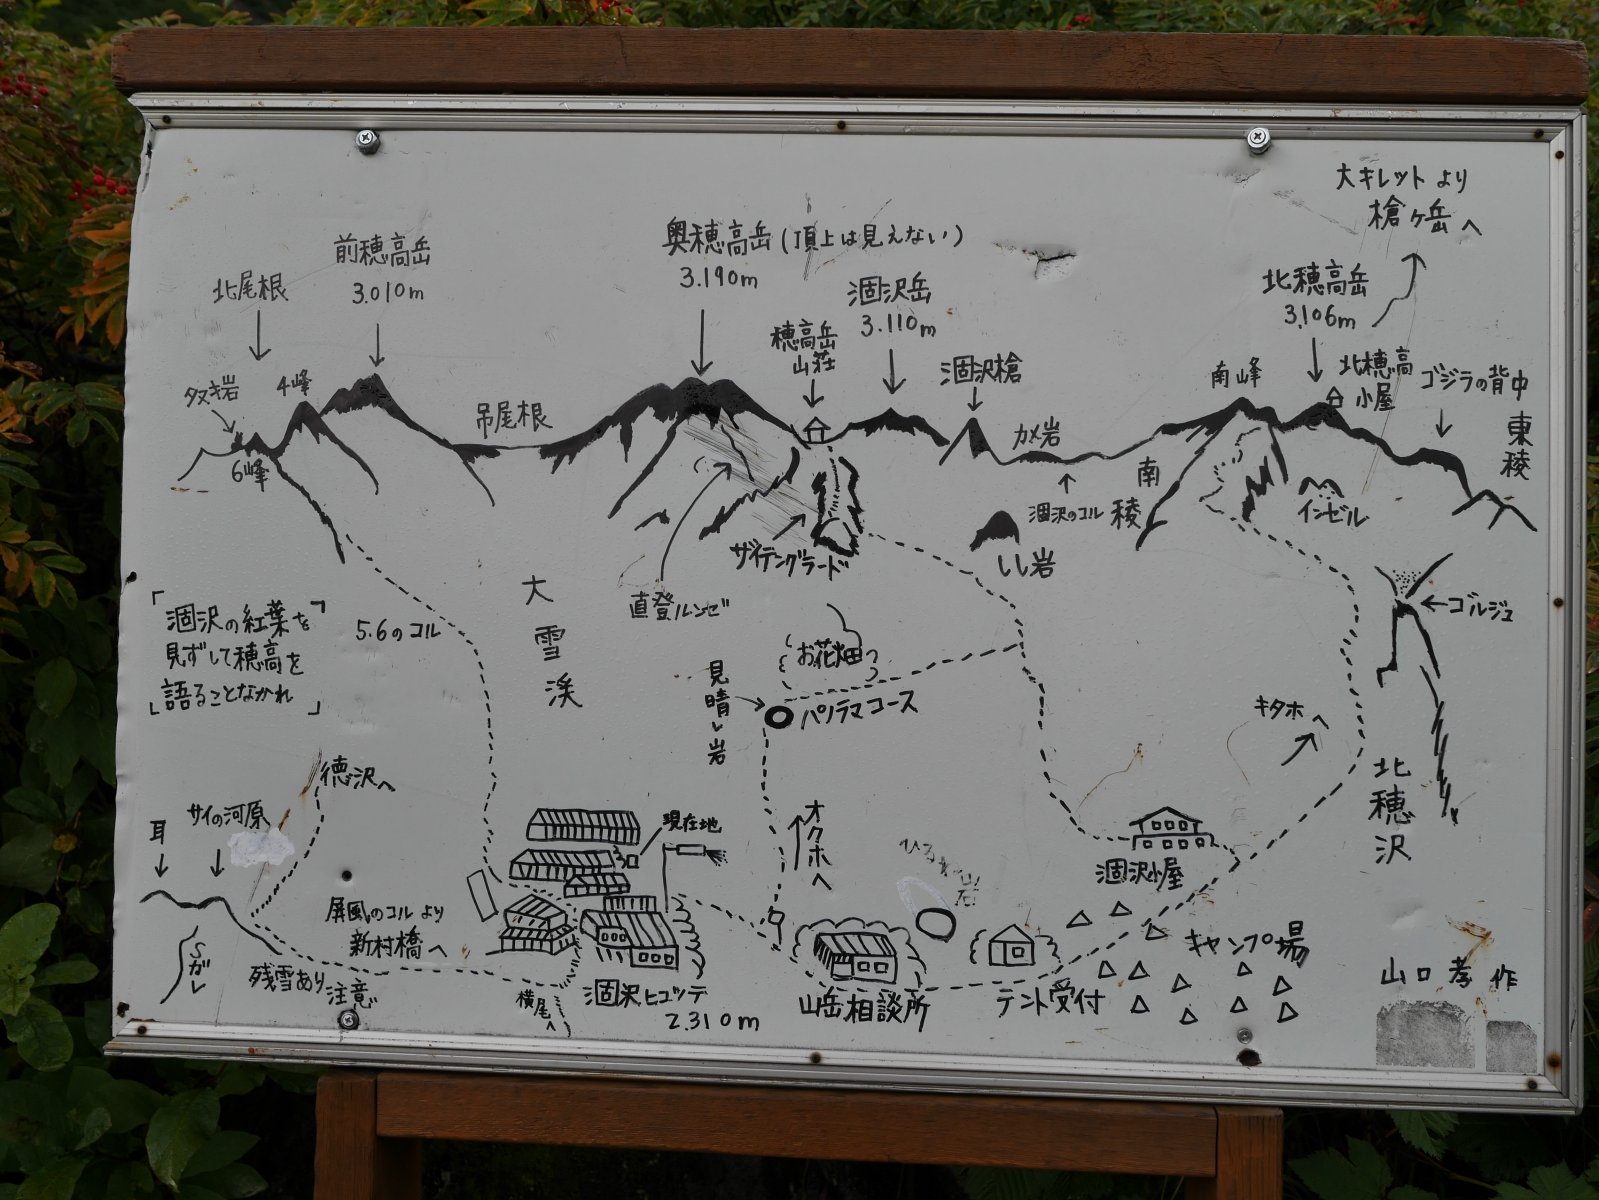 大キレットより
槍ヶ岳へ
北尾根
前穂高岳
3.010m
奥穂高岳(頂上は見えない)
3.190m
穂高岳
山荘
涸沢岳
3.110m
涸沢槍
北穂高岳
3.106m
南峰
北穂高
小屋
ゴジラの背中
東稜
タヌキ岩
4峰
6峰
吊尾根
カメ岩
涸沢のコル
南稜
インゼル
ザイテングラード
直登ルンゼ
しし岩
ゴルジュ
「涸沢の紅葉を
見ずして穂高を
語ることなかれ」
5.6のコル
大雪渓
お花畑
見晴し岩
パノラマコース
キタホへ
北穂沢
徳沢へ
耳
サイの河原
現在地
オクホへ
涸沢小屋
屏風のコルより
新村橋へ
Sガレ
残雪あり注意
横尾へ
涸沢ヒュッテ
2.310m
山岳相談所
テント受付
キャンプ場
山口孝作